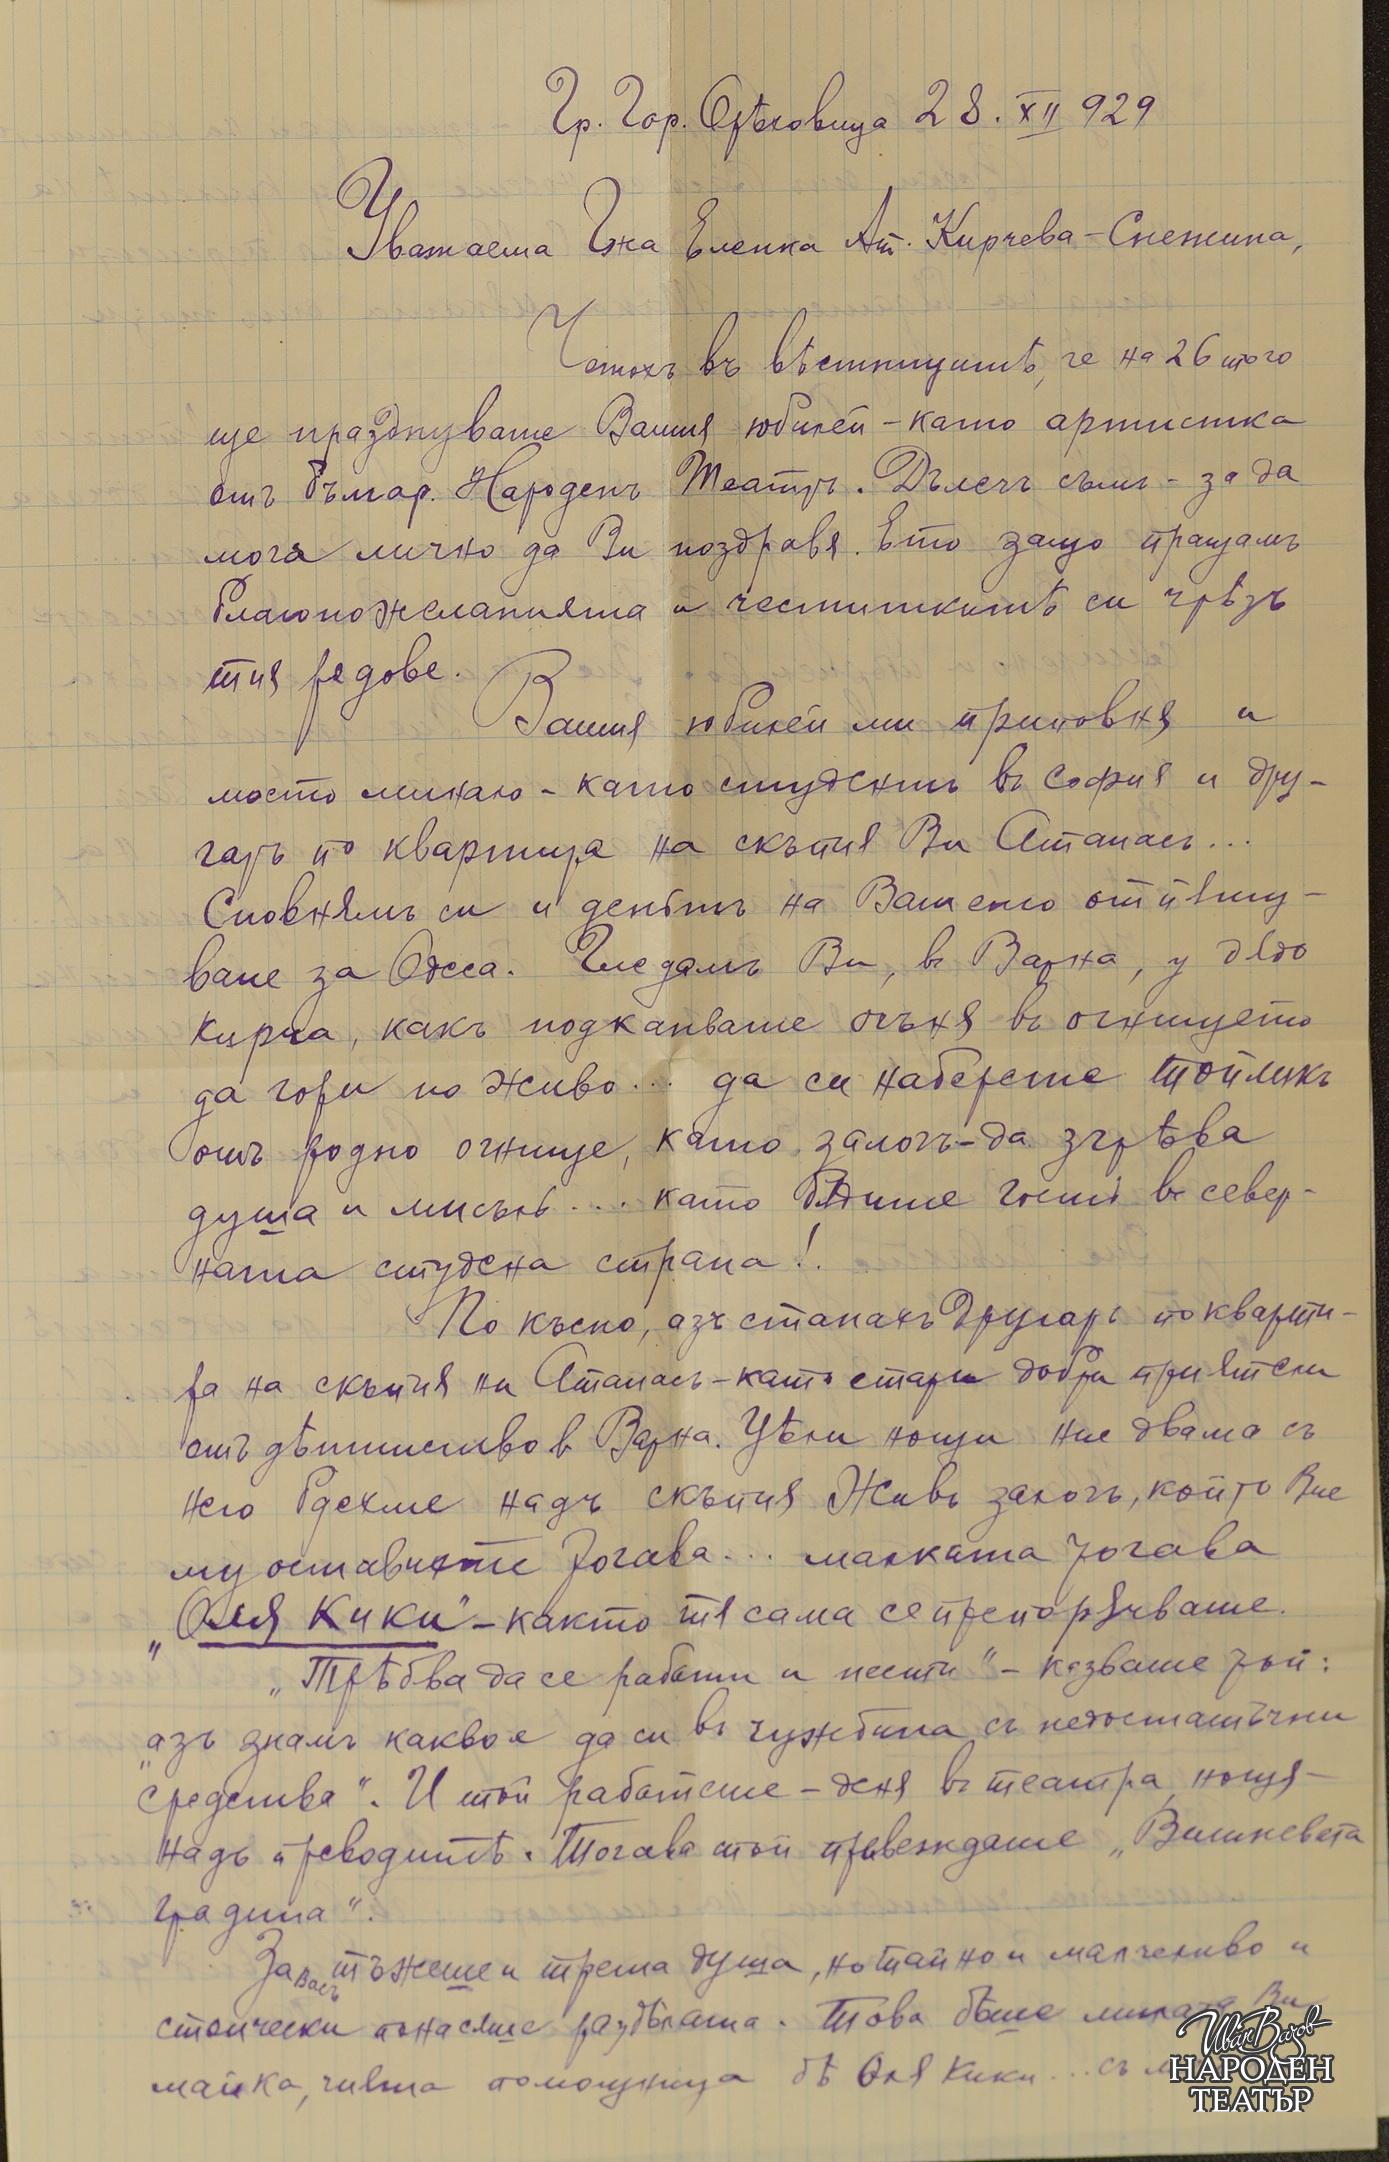 Гр. Гор. Орѣховица 28. XII 929
Уважаема Гжа Еленка Ат. Кирчева-Снежина,
Четохъ въ вѣстницитѣ, че на 26 того
ще празднувате Вашия юбилей - като артистка
отъ българ. Народенъ Театръ. Далечъ съмъ - за да
мога лично да Ви поздравя. Ето защо пращамъ
благопожеланията и честиткитѣ си чрѣзъ
тия редове.
Вашия юбилей ми припомня и
моето минало - като студентъ въ София и дру-
гарь по квартира на скъпия Ви Атанасъ...
Спомнямъ си и деньтъ на Вашето отпѫту-
ване за Одеса. Гледамъ Ви, въ Варна, у дядо
Кирча, какъ подкаквате огъня въ огнището
да гори по живо... да си наберете топликъ
отъ родно огнище, като залогъ - да згрѣва
душа и мисъль... като бѫдите гостъ въ север-
ната студена страна!
По късно, азъ станахъ другарь по кварти-
ра на скъпия ни Атанасъ - като стари добри приятели
отъ дѣтинство в Варна. Цѣли нощи ние двама съ
него бдехме надъ скъпия живъ залогъ, който Вие
му оставихте тогава... малката тогава
„Оля Кики" - както тя сама се препоръчваше.
„Трѣбва да се работи и пести" - казваше той:
„азъ знамъ какво е да си въ чужбина съ недостатъчни
средства". И той работеше - деня въ театра, нощя -
надъ преводитѣ. Тогава той превеждаше „Вишневата
градина".
За Васъ тъжеше и трета душа, но тайно и мълчеливо и
стоически понасяше раздѣлата. Това бѣше милата Ви
майка, чиято помощница бѣ Оля Кики... съ
Иван Вазов
НАРОДЕН
ТЕАТЪР